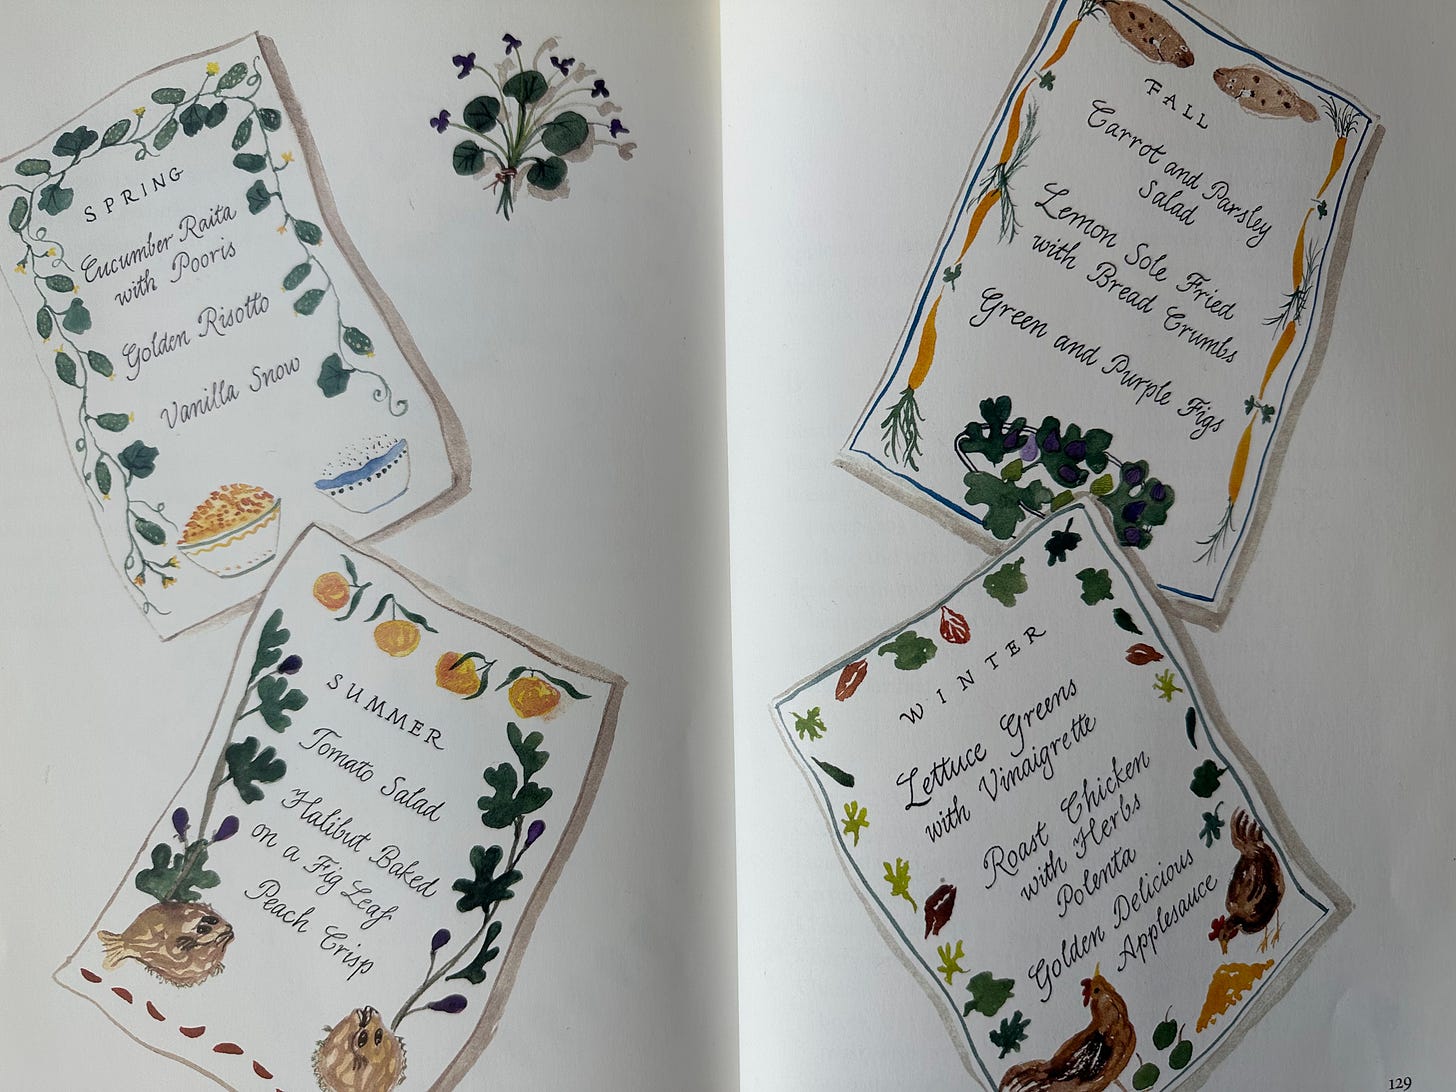 SPRING
Cucumber Raita
with Pooris
Golden Risotto
Vanilla Snow
SUMMER
Tomato Salad
Halibut Baked
on a Fig Leaf
Peach Crisp
FALL
Carrot and Parsley
Salad
Lemon Sole Fried
with Bread Crumbs
Green and Purple Figs
WINTER
Lettuce Greens
with Vinaigrette
Roast Chicken
with Herbs
Polenta
Golden Delicious
Applesauce
129